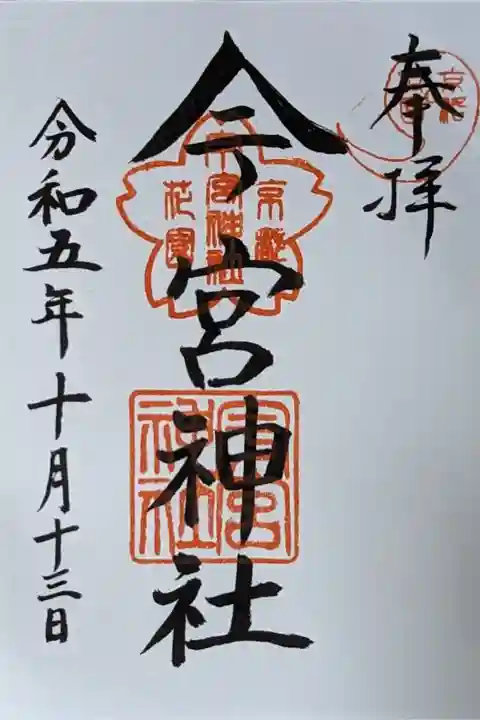 奉拝
京都
今宮神社
京都
今宮神社
花園
今宮神社
令和五年十月十三日